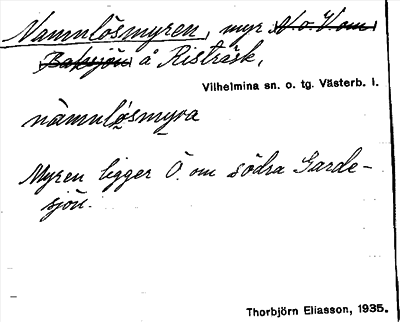 Namnlösmyren, myr N. o. V om
Baksjön å Risträsk,
Vilhelmina sn. o. tg. Västerb. l.
nàmnlǫ̀smyra
Myren ligger Ö. om södra Garde-
sjön.
Thorbjörn Eliasson, 1935.